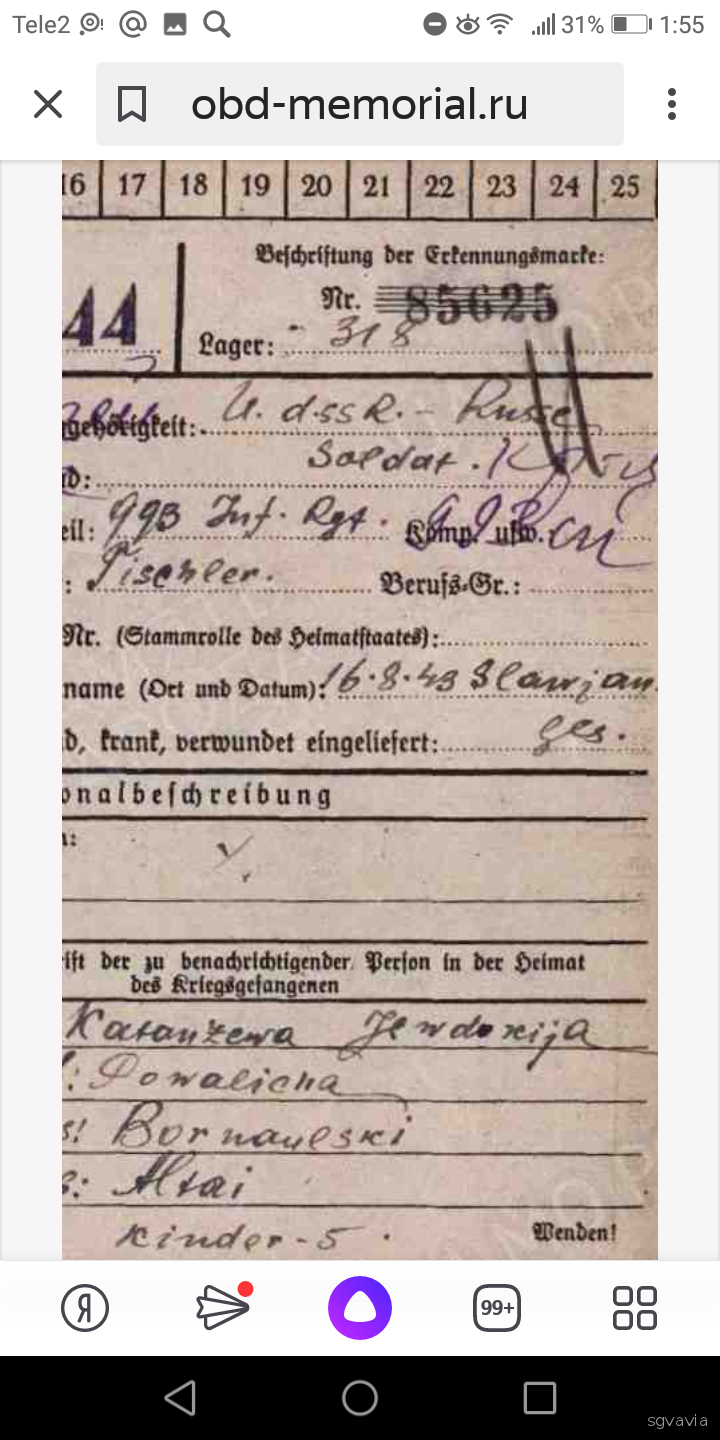 Tele2 31% 1:55
obd-memorial.ru
16 17 18 19 20 21 22 23 24 25
44
Beschriftung der Erkennungsmarke:
Nr. 85625
Lager: 318
gehörigkeit: U.d.SSR. - Russe
d: Soldat.
eil: 993 Inf. Rgt. Komp. usw.
: Tischler. Berufs-Gr.:
Nr. (Stammrolle des Heimatstaates):
name (Ort und Datum): 16.8.43 Slawjan
d, krank, verwundet eingeliefert: ges.
onalbeschreibung
n:
ift der zu benachrichtigender Person in der Heimat
des Kriegsgefangenen
Kasanzewa Jewdoxija
: Powalicha
s: Bornaulski
s: Altai
Kinder - 5. Wenden!
Я 99+
sgvavia